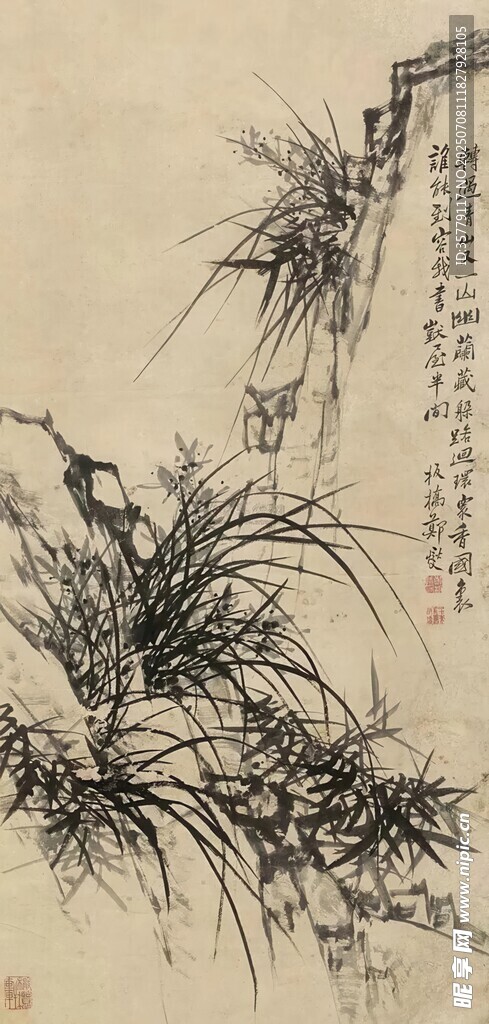 轉過青山又一山幽蘭藏躲路迴環眾香國裏
誰能到容我書獃屋半間
板橋鄭燮
ID:35779117 NO:20250708111827928105
昵享网 www.nipic.cn